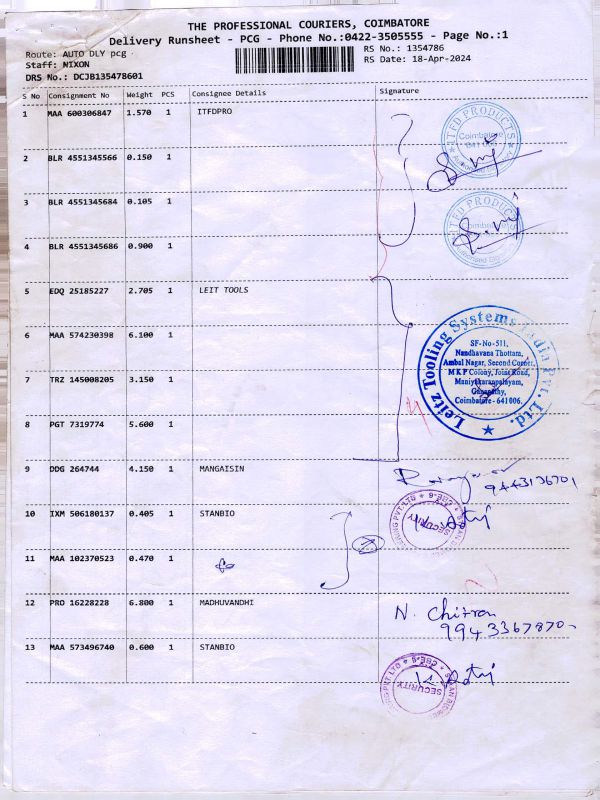 THE PROFESSIONAL COURIERS, COIMBATORE
Delivery Runsheet - PCG - Phone No.:0422-3505555 - Page No.:1
Route: AUTO DLY pcg
RS No.: 1354786
Staff: NIXON
RS Date: 18-Apr-2024
DRS No.: DCJB135478601
S No Consignment No Weight PCS Consignee Details Signature
1 MAA 600306847 1.570 1 ITFDPRO
ITFD PRODUCTS
Coimbatore
2 BLR 4551345566 0.150 1
3 BLR 4551345684 0.105 1
4 BLR 4551345686 0.900 1
5 EDQ 25185227 2.705 1 LEIT TOOLS
6 MAA 574230398 6.100 1
7 TRZ 145008205 3.150 1
8 PGT 7319774 5.600 1
Leitz Tooling Systems India Pvt. Ltd.
SF-No-511,
Nandhavana Thottam,
Ambal Nagar, Second Corner,
M K P Colony, Joint Road,
Maniyakarampalayam,
Ganapathy,
Coimbatore - 641 006.
9 DDG 264744 4.150 1 MANGAISIN
9443136701
10 IXM 506180137 0.405 1 STANBIO
SECURITY
11 MAA 102370523 0.470 1
12 PRO 16228228 6.800 1 MADHUVANDHI
N. Chitran
9943367870
13 MAA 573496740 0.600 1 STANBIO
SECURITY